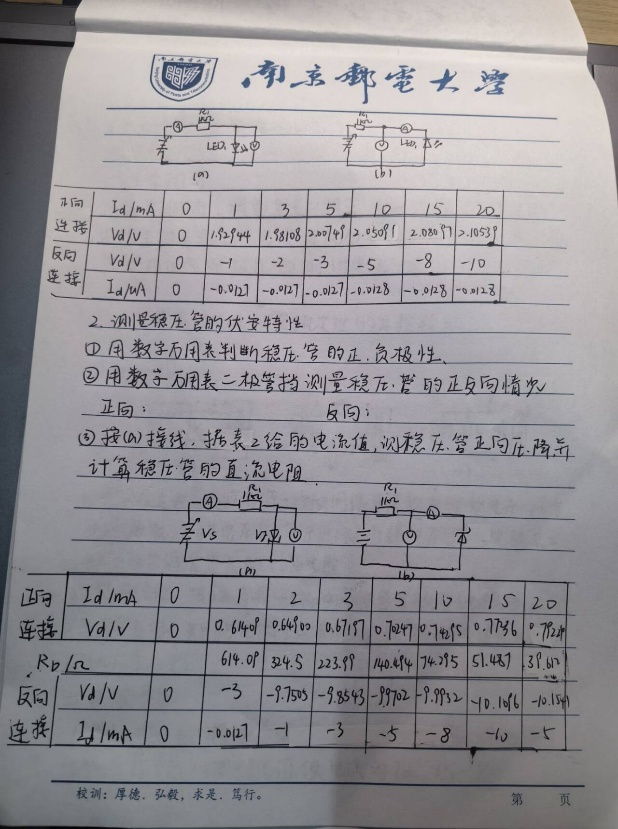 南京邮电大学
南京郵電大學
R1
1kΩ
A
LED1
V
(a)
R1
1kΩ
A
LED1
(b)
正向连接 Id/mA 0 1 3 5 10 15 20
Vd/V 0 1.92944 1.98108 2.00749 2.05091 2.08097 2.10539
反向连接 Vd/V 0 -1 -2 -3 -5 -8 -10
Id/uA 0 -0.0127 -0.0127 -0.0127 -0.0128 -0.0128 -0.0128
2. 测量稳压管的伏安特性
① 用数字万用表判断稳压管的正、负极性、
② 用数字万用表二极管挡测量稳压管的正反向情况
正向: 反向:
③ 按(a)接线. 据表2给的电流值,测稳压管正向压降并
计算稳压管的直流电阻
R1
1kΩ
A
Vs
V
(a)
R1
1kΩ
A
V
(b)
正向连接 Id/mA 0 1 2 3 5 10 15 20
Vd/V 0 0.61409 0.64900 0.67197 0.70247 0.74295 0.77236
RD/Ω 614.09 324.5 223.99 140.494 74.295 51.487
反向连接 Vd/V 0 -3 -9.7505 -9.8543 -9.9702 -9.9932 -10.1096
Id/mA 0 -0.0127 -1 -3 -5 -8 -10 -5
校训:厚德、弘毅,求是、笃行。 第 页